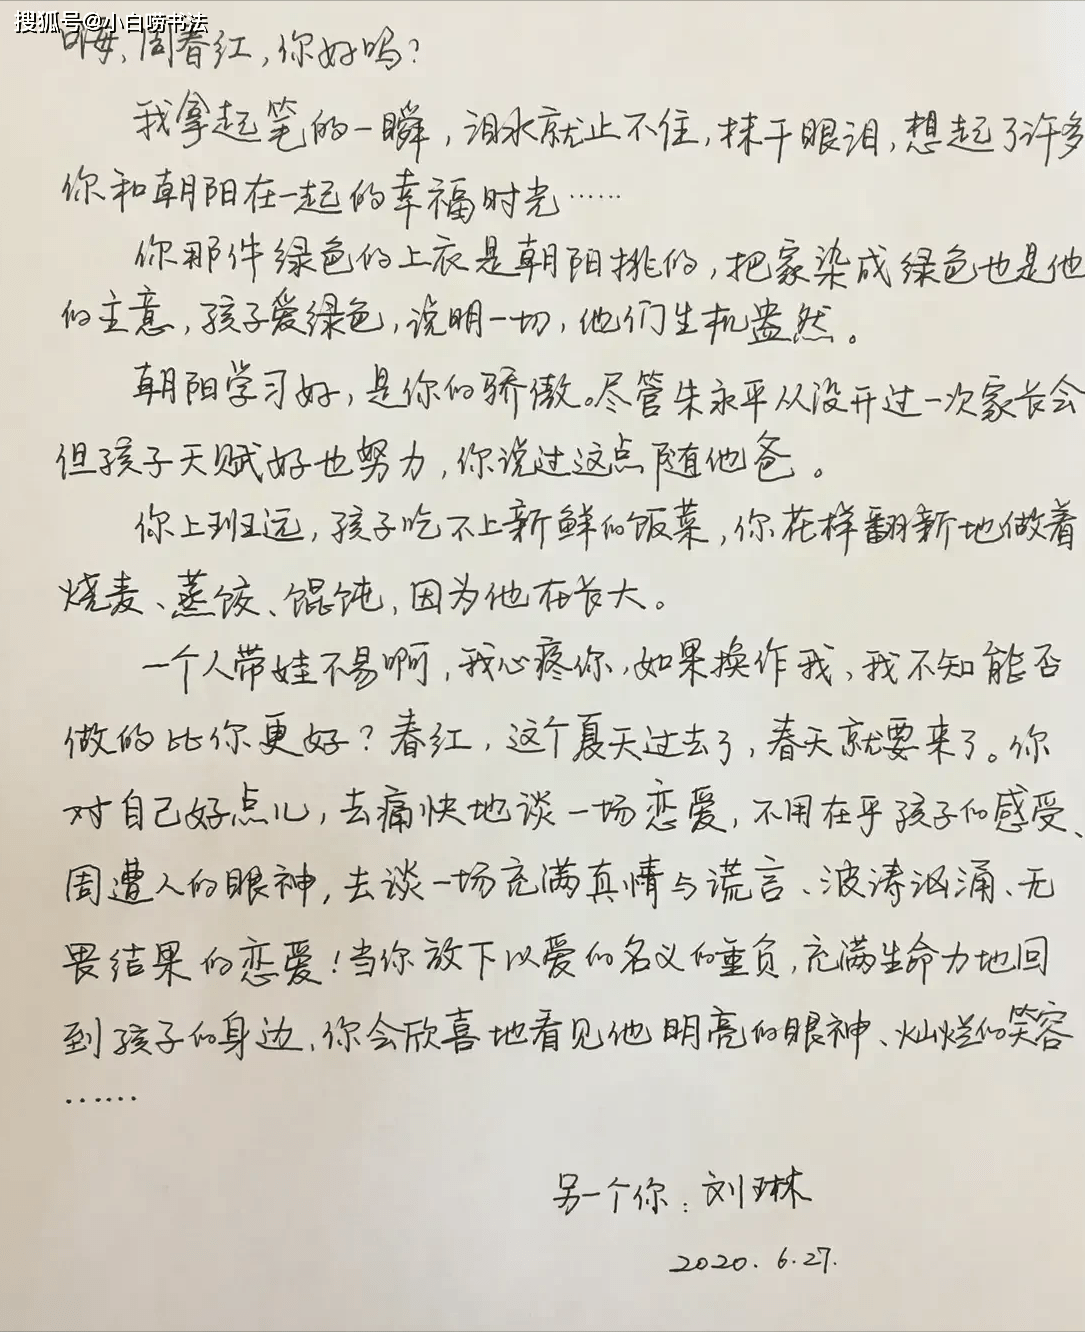 搜狐号@小白唠书法
嗨，周春红，你好吗？
我拿起笔的一瞬，泪水就止不住，抹干眼泪，想起了许多
你和朝阳在一起的幸福时光……
你那件绿色的上衣是朝阳挑的，把家染成绿色也是他
的主意，孩子爱绿色，说明一切，他们生机盎然。
朝阳学习好，是你的骄傲。尽管朱永平从没开过一次家长会
但孩子天赋好也努力，你说过这点随他爸。
你上班远，孩子吃不上新鲜的饭菜，你花样翻新地做着
烧麦、蒸饺、馄饨，因为他在长大。
一个人带娃不易啊，我心疼你，如果换作我，我不知能否
做的比你更好？春红，这个夏天过去了，春天就要来了。你
对自己好点儿，去痛快地谈一场恋爱，不用在乎孩子的感受、
周遭人的眼神，去谈一场充满真情与谎言、波涛汹涌、无
畏结果的恋爱！当你放下以爱的名义的重负，充满生命力地回
到孩子的身边，你会欣喜地看见他明亮的眼神、灿烂的笑容
……
另一个你：刘琳
2020.6.27.